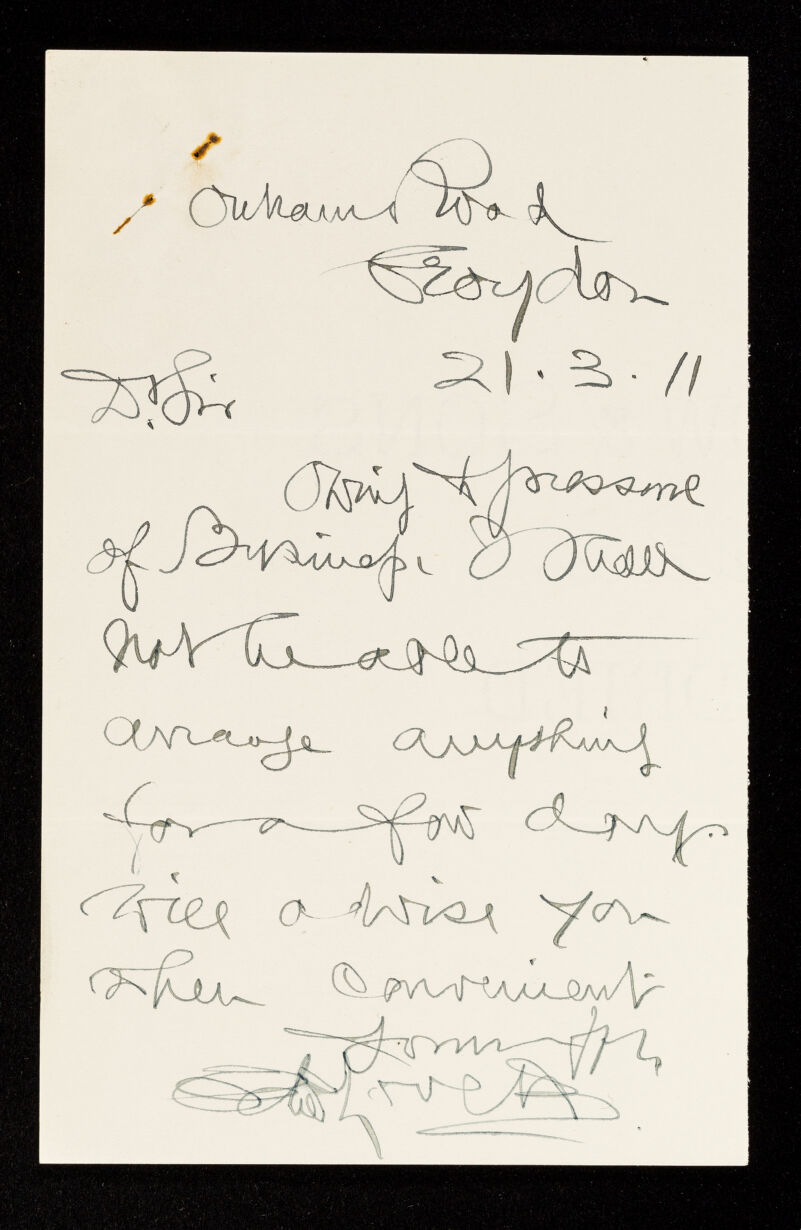 Outrams Road
Croydon
21.3.11
Dr. Sir
Owing to pressure
of Business. I shall
not be able to
arrange anything
for a few days.
Will advise you
when convenient
Yours
Lovett